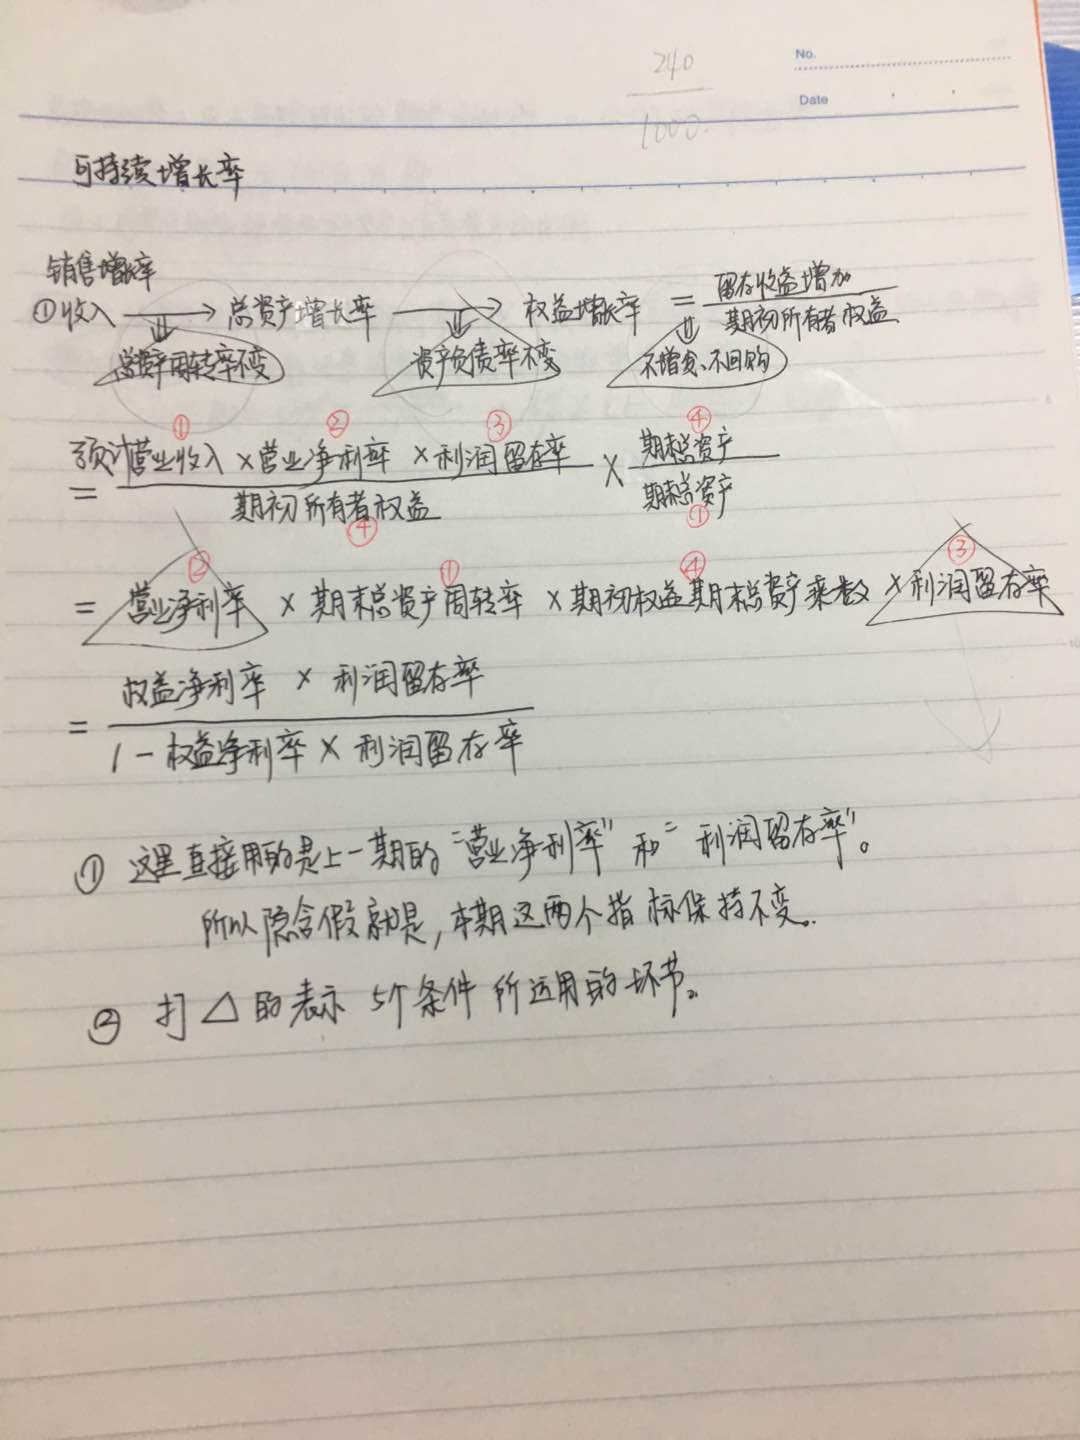 No.
240
Date
1000.
可持续增长率
销售增长率
①收入 → 总资产增长率 → 权益增长率 = 留存收益增加
期初所有者权益
总资产周转率不变 资产负债率不变 不增发、不回购
① ② ③ ④
预计营业收入 × 营业净利率 × 利润留存率 × 期末总资产
= 期初所有者权益 期末总资产
④ ①
② ① ④ ③
= 营业净利率 × 期末总资产周转率 × 期初权益期末总资产乘数 × 利润留存率
权益净利率 × 利润留存率
=
1 - 权益净利率 × 利润留存率
① 这里直接用的是上一期的“营业净利率”和“利润留存率”。
所以隐含假就是,本期这两个指标保持不变。
② 打△的表示 5个条件所运用的环节。